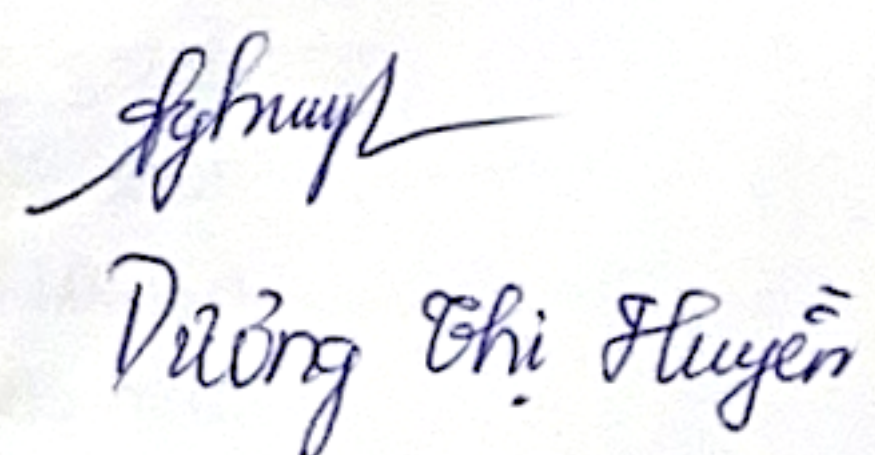 Dương Thị Huyền